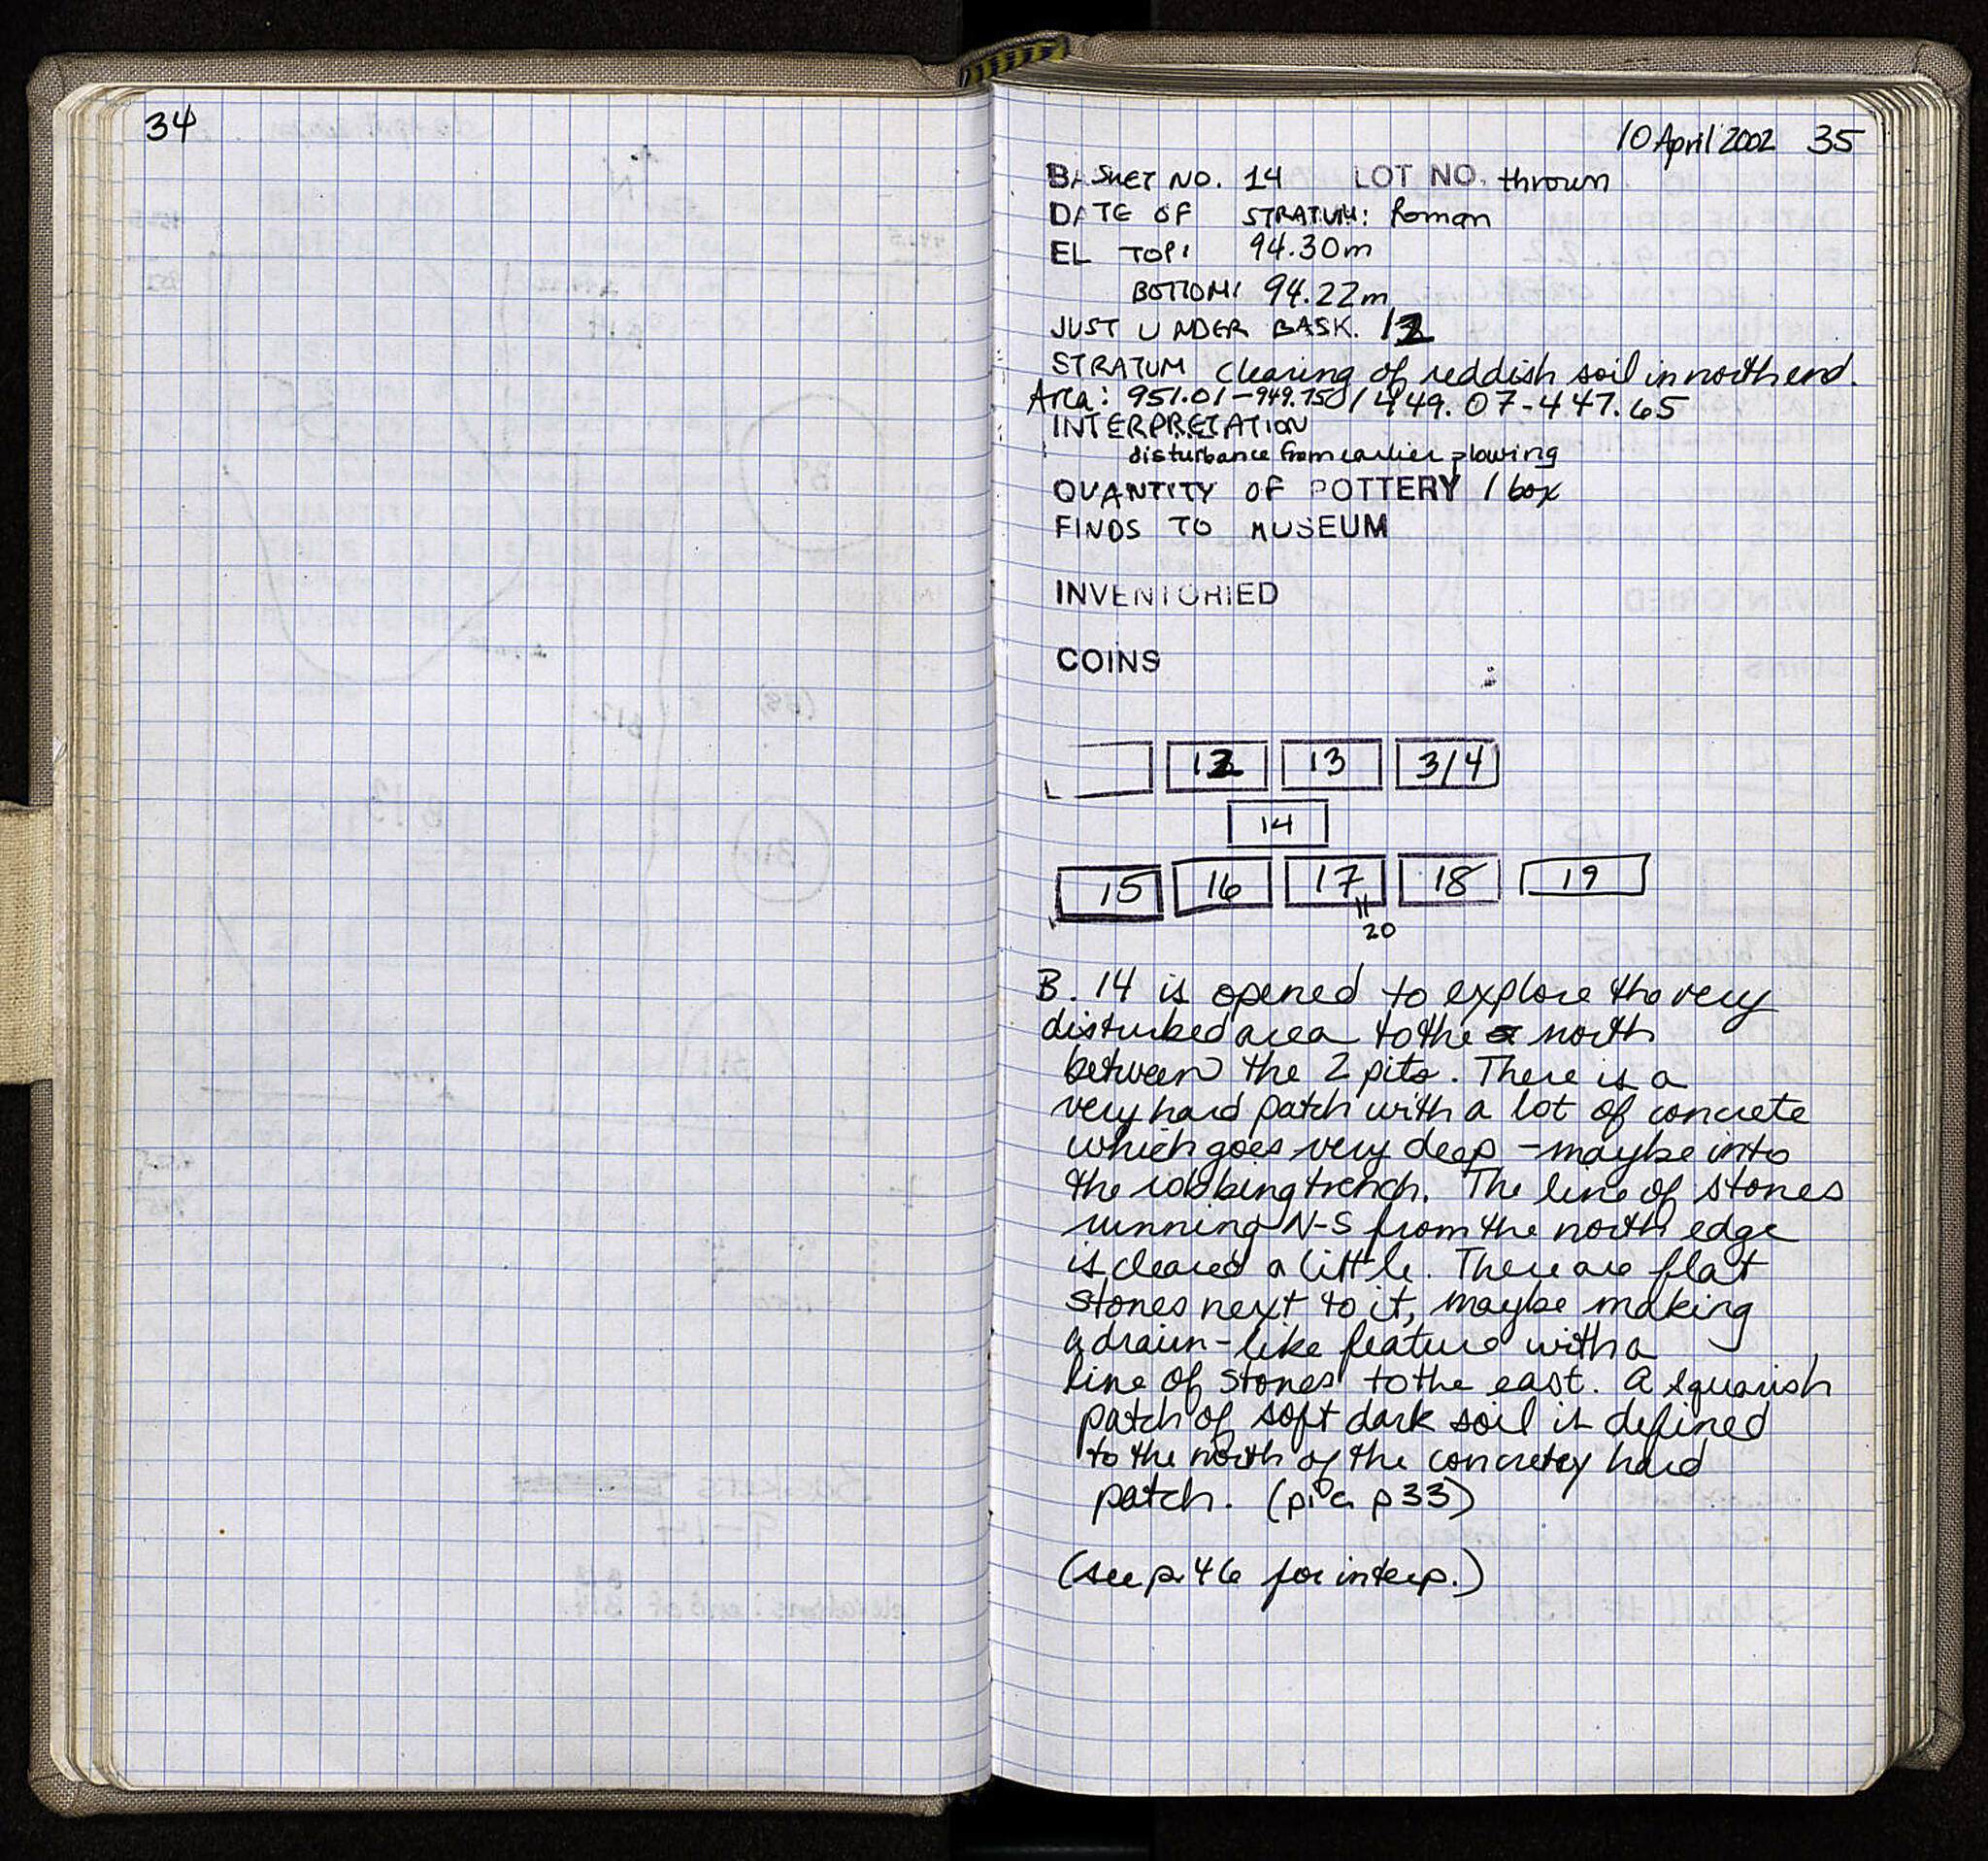 34
10 April 2002 35
BASKET NO. 14 LOT NO. thrown
DATE OF STRATUM: Roman
EL TOP: 94.30m
BOTTOM: 94.22m
JUST UNDER BASK. 12
STRATUM clearing of reddish soil in north end.
Area: 951.01-949.75/449.07-447.65
INTERPRETATION
disturbance from earlier plowing
QUANTITY OF POTTERY 1 box
FINDS TO MUSEUM
INVENTORIED
COINS
12 13 3/4
14
15 16 17 18 19
20
B. 14 is opened to explore the very
disturbed area to the north
between the 2 pits. There is a
very hard patch with a lot of concrete
which goes very deep - maybe into
the robbing trench. The line of stones
running N-S from the north edge
is cleared a little. There are flat
stones next to it, maybe making
a drain-like feature with a
line of stones to the east. A squarish
patch of soft dark soil is defined
to the north of the concretey hard
patch. (p33)
(see p. 46 for interp.)